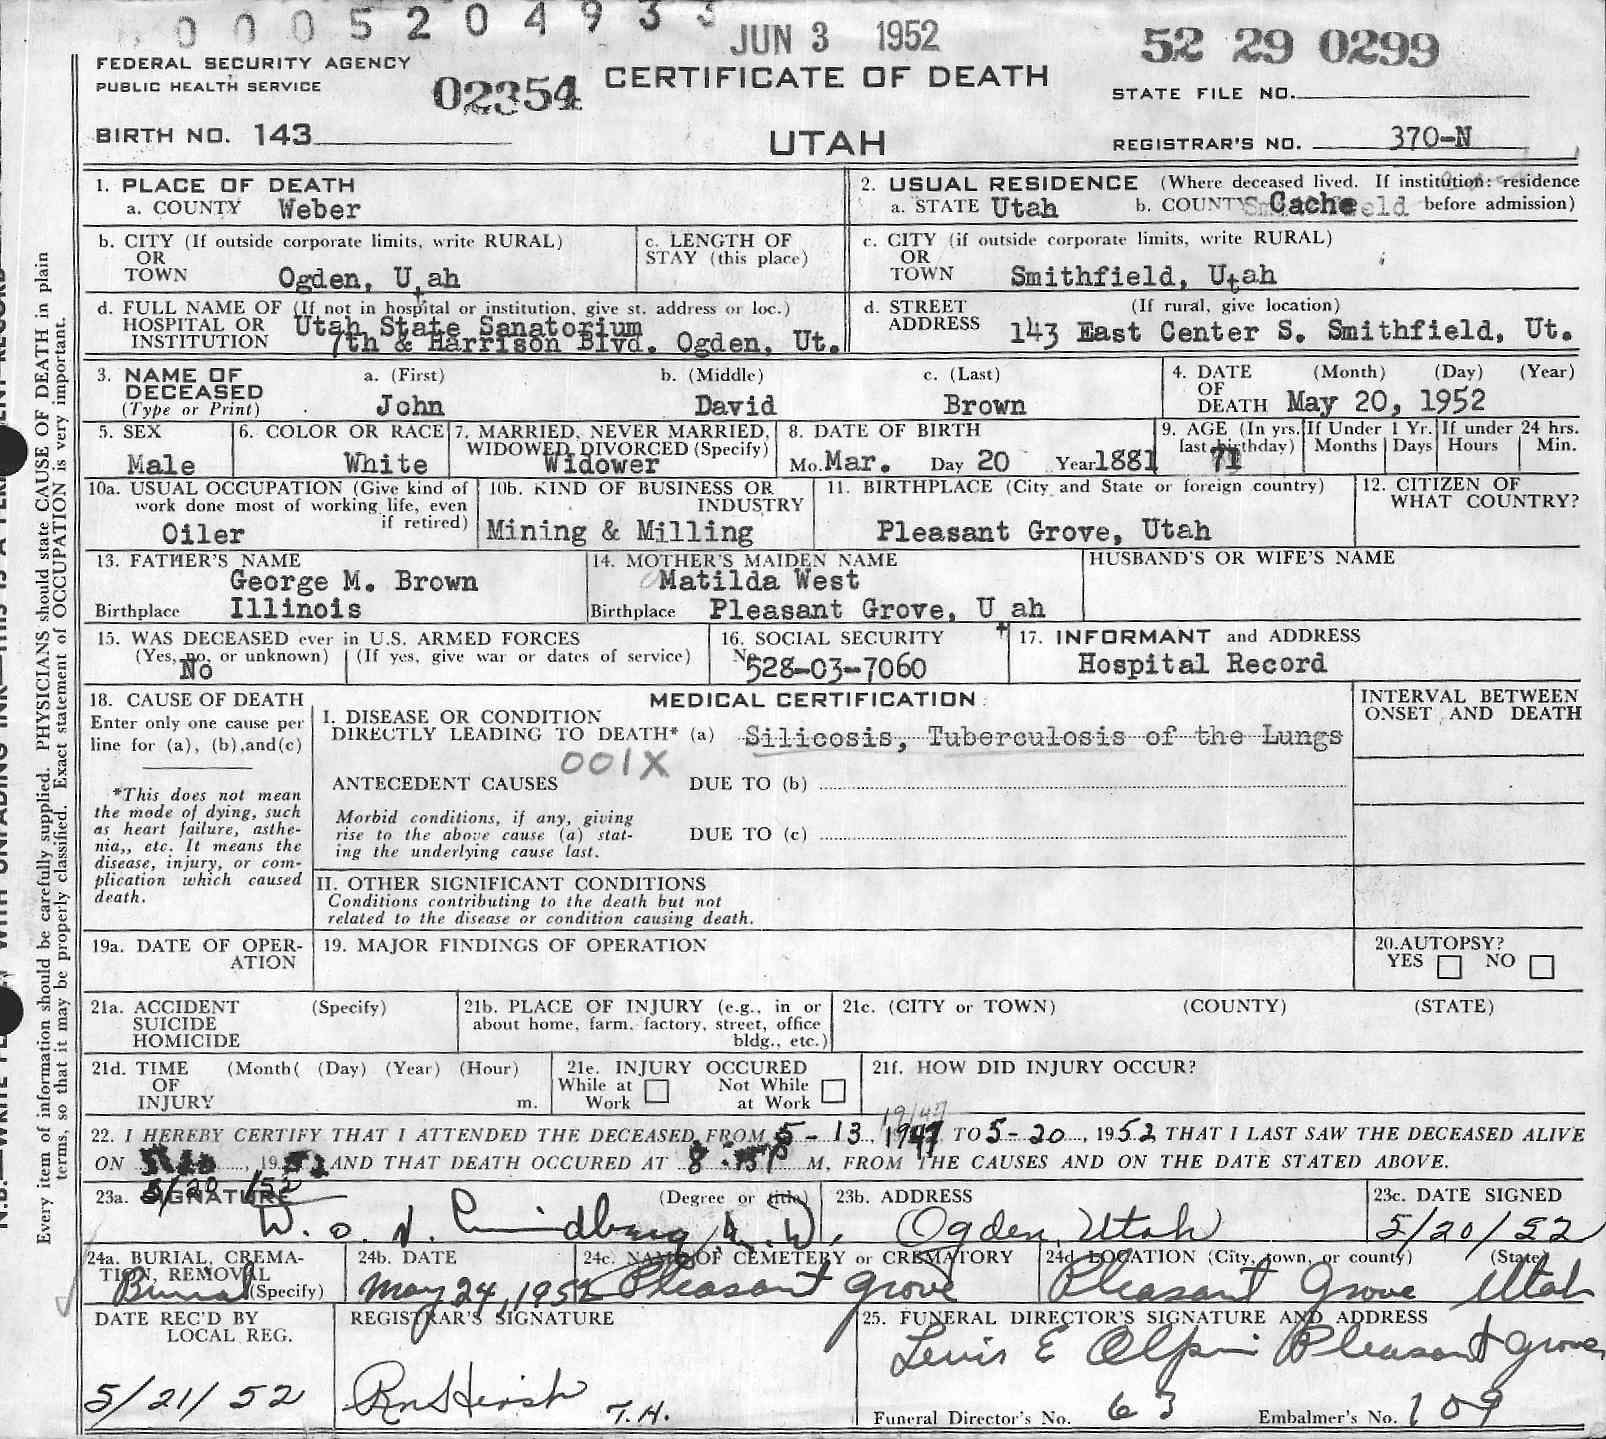 0 0 0 5 2 0 4 9 3 3
JUN 3 1952
52 29 0299
FEDERAL SECURITY AGENCY
PUBLIC HEALTH SERVICE
02354
CERTIFICATE OF DEATH
STATE FILE NO.
BIRTH NO. 143
UTAH
REGISTRAR'S NO. 370-N
1. PLACE OF DEATH
a. COUNTY Weber
2. USUAL RESIDENCE (Where deceased lived. If institution: residence
a. STATE Utah b. COUNTY Cache before admission)
b. CITY (If outside corporate limits, write RURAL)
OR
TOWN Ogden, Utah
c. LENGTH OF
STAY (this place)
c. CITY (if outside corporate limits, write RURAL)
OR
TOWN Smithfield, Utah
d. FULL NAME OF (If not in hospital or institution, give st. address or loc.)
HOSPITAL OR Utah State Sanatorium
INSTITUTION 7th & Harrison Blvd. Ogden, Ut.
d. STREET (If rural, give location)
ADDRESS 143 East Center S. Smithfield, Ut.
3. NAME OF a. (First) b. (Middle) c. (Last)
DECEASED
(Type or Print) John David Brown
4. DATE (Month) (Day) (Year)
OF
DEATH May 20, 1952
5. SEX
Male
6. COLOR OR RACE
White
7. MARRIED, NEVER MARRIED,
WIDOWED, DIVORCED (Specify)
Widower
8. DATE OF BIRTH
Mo. Mar. Day 20 Year 1881
9. AGE (In yrs.
last birthday)
71
If Under 1 Yr.
Months Days
If under 24 hrs.
Hours Min.
10a. USUAL OCCUPATION (Give kind of
work done most of working life, even
if retired)
Oiler
10b. KIND OF BUSINESS OR
INDUSTRY
Mining & Milling
11. BIRTHPLACE (City and State or foreign country)
Pleasant Grove, Utah
12. CITIZEN OF
WHAT COUNTRY?
13. FATHER'S NAME
George M. Brown
Birthplace Illinois
14. MOTHER'S MAIDEN NAME
Matilda West
Birthplace Pleasant Grove, Utah
HUSBAND'S OR WIFE'S NAME
15. WAS DECEASED ever in U.S. ARMED FORCES
(Yes, no, or unknown) (If yes, give war or dates of service)
No
16. SOCIAL SECURITY
No. 528-03-7060
17. INFORMANT and ADDRESS
Hospital Record
18. CAUSE OF DEATH
Enter only one cause per
line for (a), (b),and(c)
*This does not mean
the mode of dying, such
as heart failure, asthe-
nia,, etc. It means the
disease, injury, or com-
plication which caused
death.
MEDICAL CERTIFICATION
I. DISEASE OR CONDITION
DIRECTLY LEADING TO DEATH* (a) Silicosis, Tuberculosis of the Lungs
001X
ANTECEDENT CAUSES DUE TO (b)
Morbid conditions, if any, giving
rise to the above cause (a) stat-
ing the underlying cause last.
DUE TO (c)
II. OTHER SIGNIFICANT CONDITIONS
Conditions contributing to the death but not
related to the disease or condition causing death.
INTERVAL BETWEEN
ONSET AND DEATH
19a. DATE OF OPER-
ATION
19. MAJOR FINDINGS OF OPERATION
20.AUTOPSY?
YES NO
21a. ACCIDENT (Specify)
SUICIDE
HOMICIDE
21b. PLACE OF INJURY (e.g., in or
about home, farm, factory, street, office
bldg., etc.)
21c. (CITY or TOWN) (COUNTY) (STATE)
21d. TIME (Month( (Day) (Year) (Hour)
OF
INJURY m.
21e. INJURY OCCURED
While at Work
Not While at Work
21f. HOW DID INJURY OCCUR?
22. I HEREBY CERTIFY THAT I ATTENDED THE DECEASED FROM 5-13, 1947 TO 5-20, 1952 THAT I LAST SAW THE DECEASED ALIVE
ON 5/20, 1952 AND THAT DEATH OCCURED AT 8 M, FROM THE CAUSES AND ON THE DATE STATED ABOVE.
5/20 /52
23a. SIGNATURE (Degree or title)
M.D.
23b. ADDRESS
Ogden, Utah
23c. DATE SIGNED
5/20/52
24a. BURIAL, CREMA-
TION, REMOVAL
Burial (Specify)
24b. DATE
May 24, 1952
24c. NAME OF CEMETERY or CREMATORY
Pleasant Grove
24d LOCATION (City, town, or county) (State)
Pleasant Grove Utah
DATE REC'D BY
LOCAL REG.
5/21/52
REGISTRAR'S SIGNATURE
T.H.
25. FUNERAL DIRECTOR'S SIGNATURE AND ADDRESS
Lewis E Olpin Pleasant Grove
Funeral Director's No. 63 Embalmer's No. 109
Every item of information should be carefully supplied. PHYSICIANS should state CAUSE OF DEATH in plain
terms, so that it may be properly classified. Exact statement of OCCUPATION is very important.